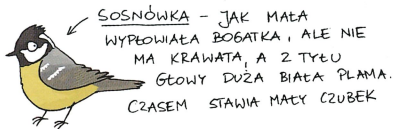 SOSNÓWKA – JAK MAŁA
WYPŁOWIAŁA BOGATKA, ALE NIE
MA KRAWATA, A Z TYŁU
GŁOWY DUŻA BIAŁA PLAMA.
CZASEM STAWIA MAŁY CZUBEK